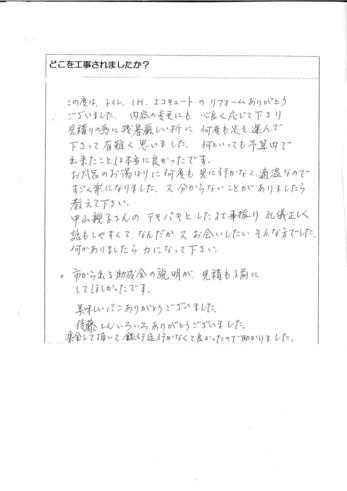 どこを工事されましたか？
この度は、トイレ、IH、エコキュートのリフォームありがとう
ございました。内容の変更にも心良く応じて下さり
見積りの為に残暑厳しい折に何度も足を運んで
下さって有難く思いました。何といっても予算内で
出来たことは本当に良かったです。
お風呂のお湯はりに何度も見に行かなく適温なので
すごく楽になりました。又分からないことがありましたら
教えて下さい。
中山親子さんのテキパキとした仕事振り礼儀正しく
話もしやすくて、なんだか又お会いしたいそんな方でした。
何かありましたら力になって下さい。
○ 市から出る助成金の説明が、見積もる前に
してほしかったです。
美味しいパンありがとうございました。
後藤さんいろいろありがとうございました。
集金して頂いて銀行迄行かなくて良かったので助かりました。